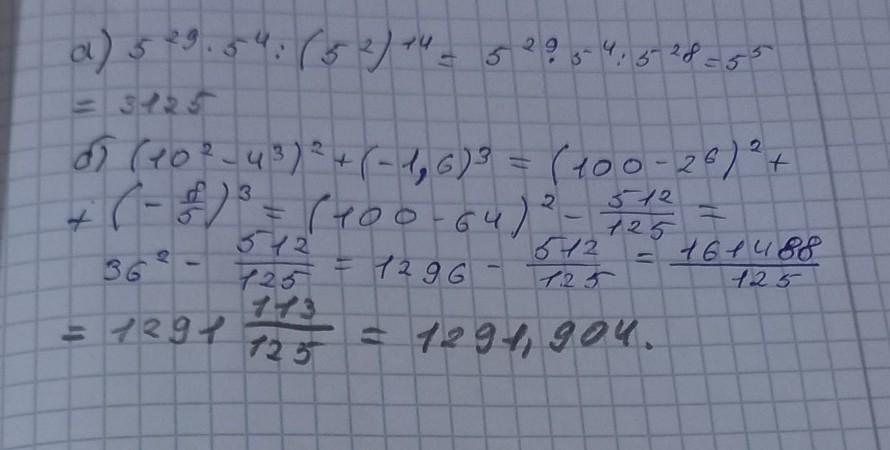 а) 5²⁹ · 5⁴ : (5²)¹⁴ = 5²⁹ · 5⁴ : 5²⁸ = 5⁵
= 3125
б) (10² - 4³)² + (-1,6)³ = (100 - 2⁶)² +
+ (- 8/5)³ = (100 - 64)² - 512/125 =
36² - 512/125 = 1296 - 512/125 = 161488/125
= 1291 113/125 = 1291,904.